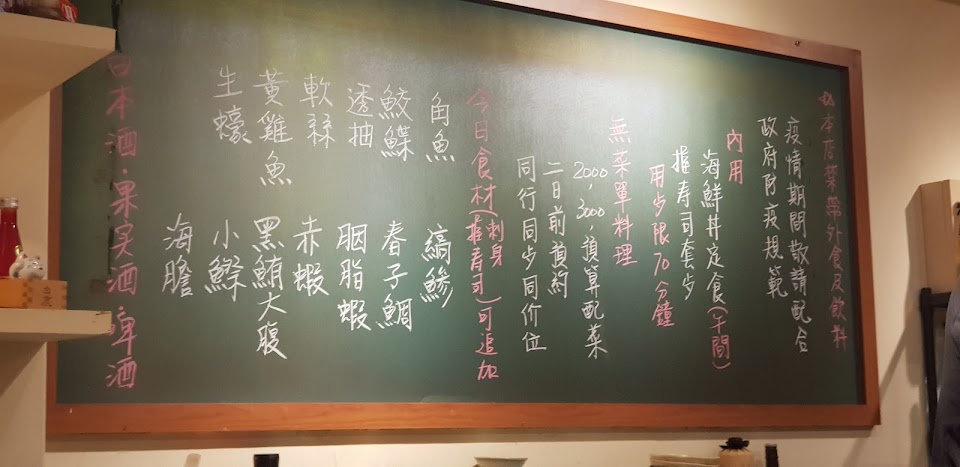 本店禁帶外食及飲料
疫情期間敬請配合
政府防疫規範
內用
海鮮丼定食(午間)
握壽司套步
用步限70分鐘
無菜單料理
2000，3000，預算配菜
二日前預約
同行同步同价位
今日食材(刺身握壽司)可追加
角魚 縞鰺
鮫鰈 春子鯛
透抽 胭脂蝦
軟絲 赤蝦
黃雞魚 黑鮪大腹
生蠔 小鱗
海膽
日本酒·果实酒·啤酒